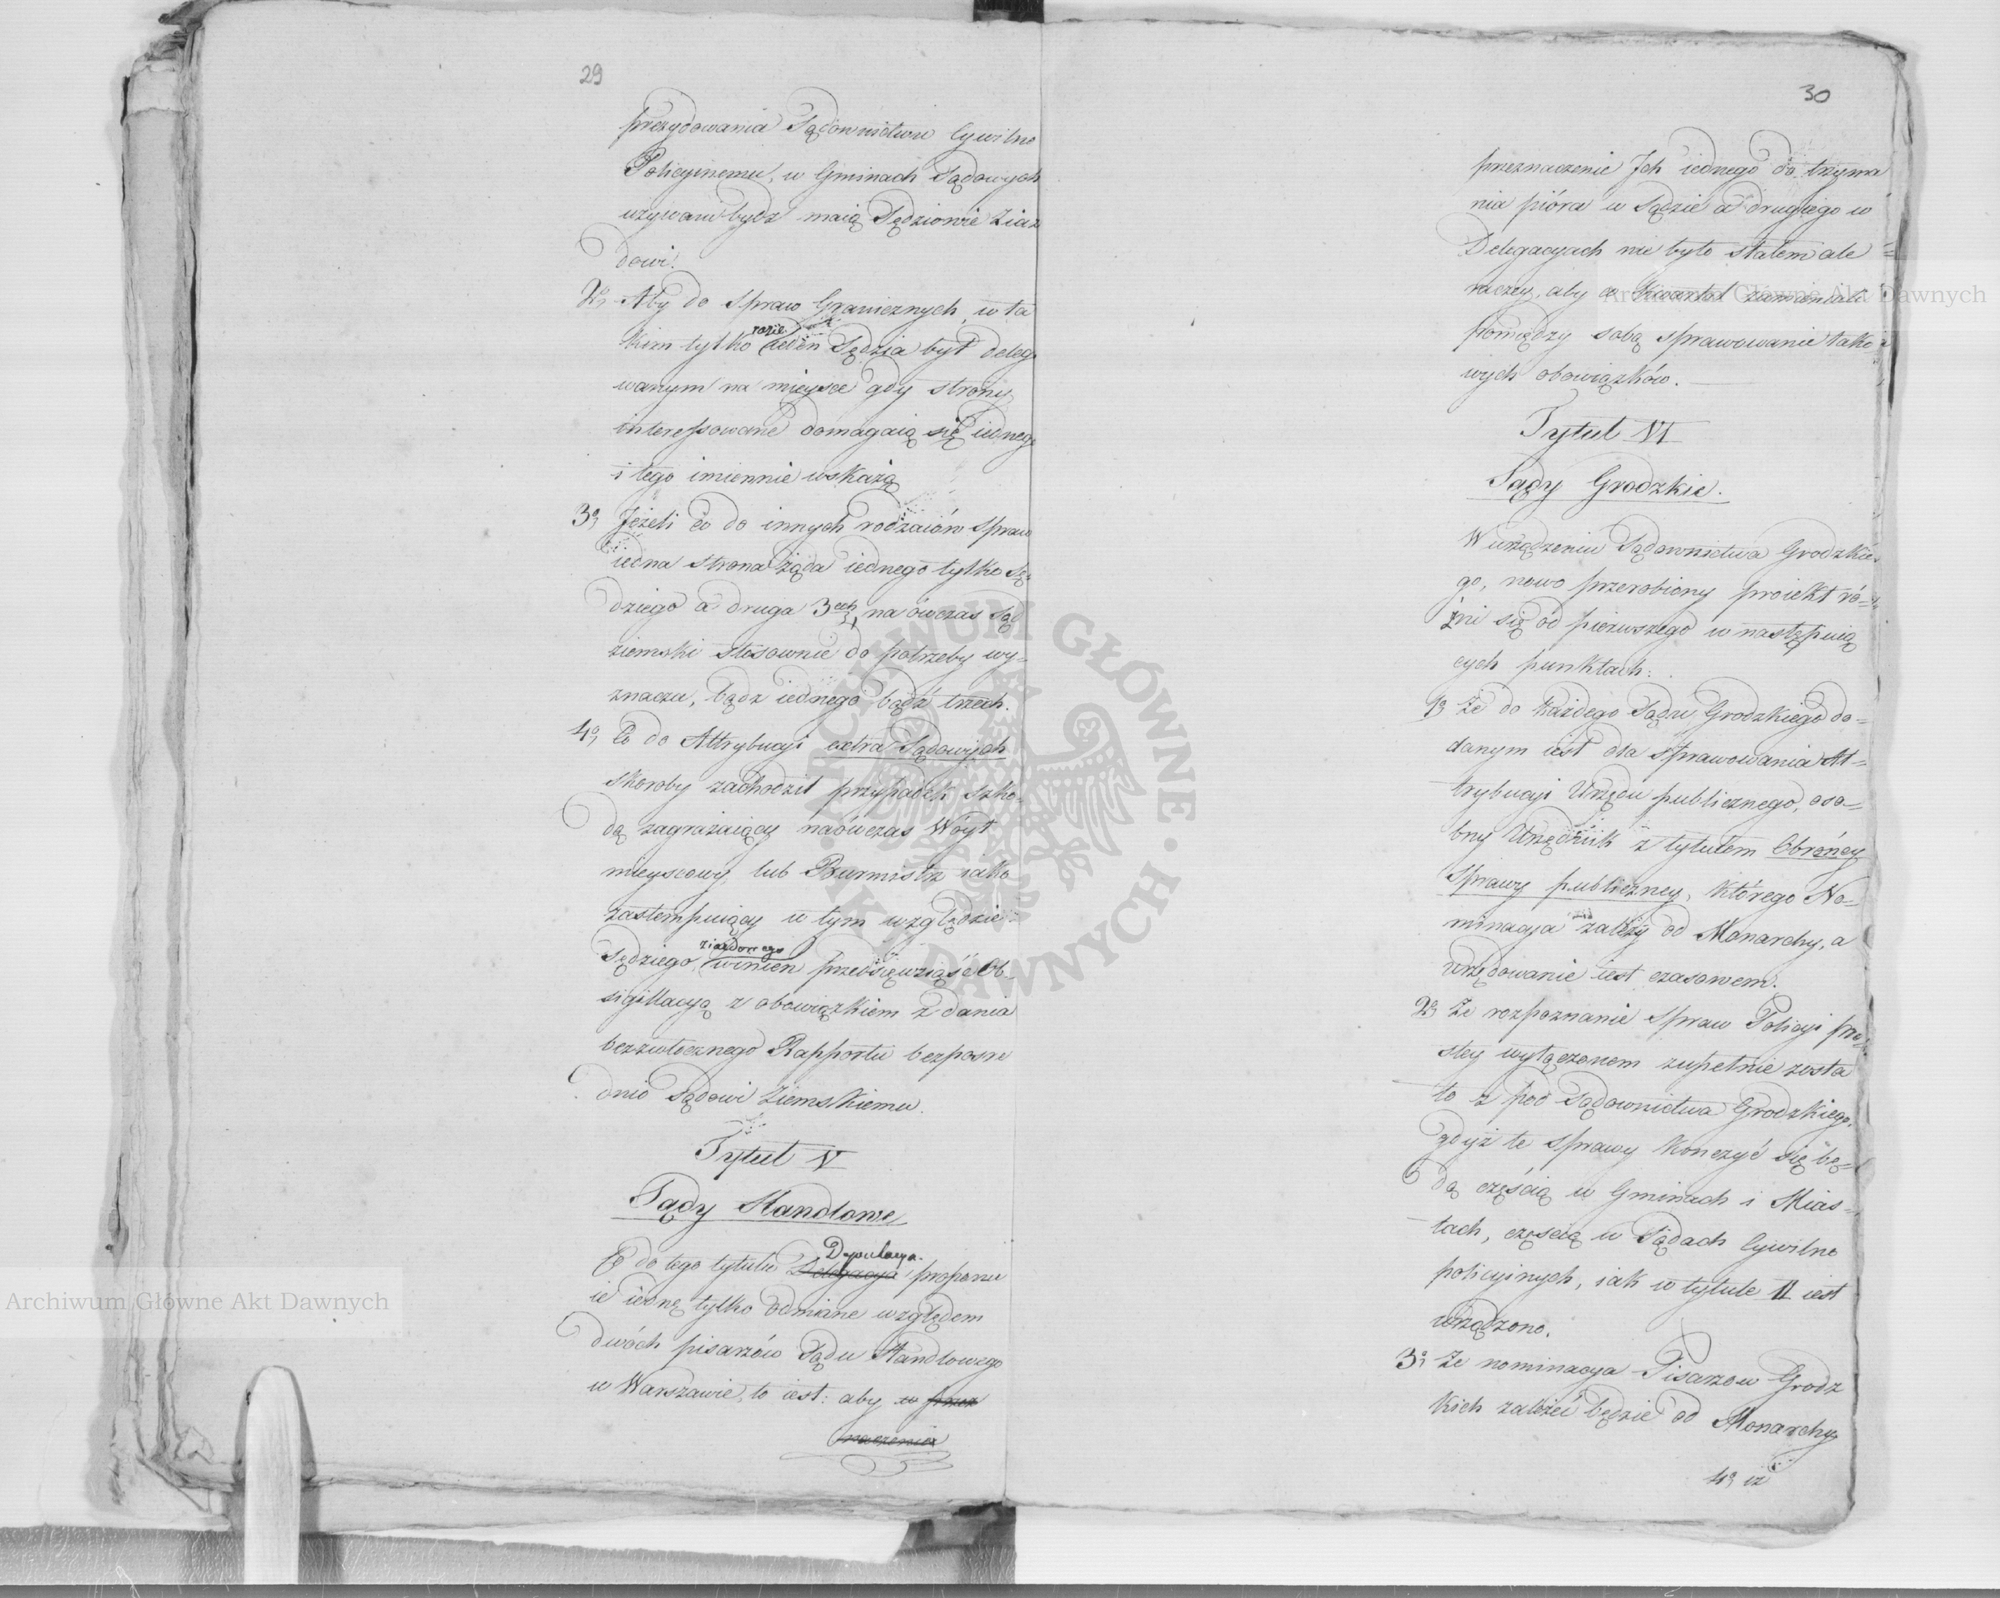 29
prezydowania Sądownictwu Cywilno
Policyinemu, w Gminach Sądowych
używani bydź maią Sędziowie Ziaz
dowi.
2o, Aby do spraw Granicznych, w ta
kim tylko razie ieden Sędzia był deleg
wanym na mieysce gdy strony
interessowane domagaią się iednego
i tego imiennie wskażą
3o, Jeżeli Co do innych rodzaiów spraw
iedna strona żąda iednego tylko Sę-
dziego a druga 3ech, na ówczas Sąd
ziemski stosownie do potrzeby wy-
znacza, bądź iednego bądź trzech.
4o, Co do Attrybucyi extra Sądowych
skoroby zachodził przypadek szko-
dą zagrażaiący naówczas Wóyt
mieyscowy, lub Burmistrz iako
zastempuiący w tym względzie
Sędziego ziazdowego winien przedsięwziąść Ob-
sigillacyą z obowiązkiem zdania
bezzwłocznego Rapportu bezpośre
dnio Sądowi Ziemskiemu.
Tytuł V
Sądy Handlowe
Co do tego tytułu Delegacya Deputacya proponu
ie iednę tylko odmianę względem
dwóch pisarzów Sądu Handlowego
w Warszawie, to iest: aby w przez
naczenia
30
przeznaczenie Ich iednego do trzyma
nia pióra w Sądzie a drugiego w
Delegacyach nie było stałem ale
raczey, aby co kwartał zamieniali
pomiędzy sobą sprawowanie tako
wych obowiązków.
Tytuł VI
Sądy Grodzkie.
W urządzeniu Sądownictwa Grodzkie-
go, nowo przerobiony proiekt ró-
żni się od pierwszego w następuią
cych punktach:
1o, Że do każdego Sądu Grodzkiego do-
danym iest dla sprawowania At-
trybucyi Urzędu publicznego, oso-
bny Urzędnik z tytułem Obrońcy
sprawy publiczney, którego No-
minacya zależy od Monarchy, a
urzędowanie iest czasowem.
2o, Że rozpoznanie spraw Policyi pro-
stey wyłączonem zupełnie zosta
ło z pod Sądownictwa Grodzkiego,
gdyż te sprawy kończyć się bę-
dą częścią w Gminach i Mias-
tach, częscią w Sądach Cywilno
policyinych, iak w tytule II iest
urządzono.
3o, Że nominacya Pisarzow Grodz
kich zależeć będzie od Monarchy
4o, iż
Archiwum Główne Akt Dawnych
Archiwum Główne Akt Dawnych
ARCHIWUM GŁÓWNE · AKT DAWNYCH ·